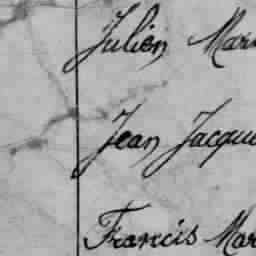 Julien Mar
Jean Jacqu
Francis Mar